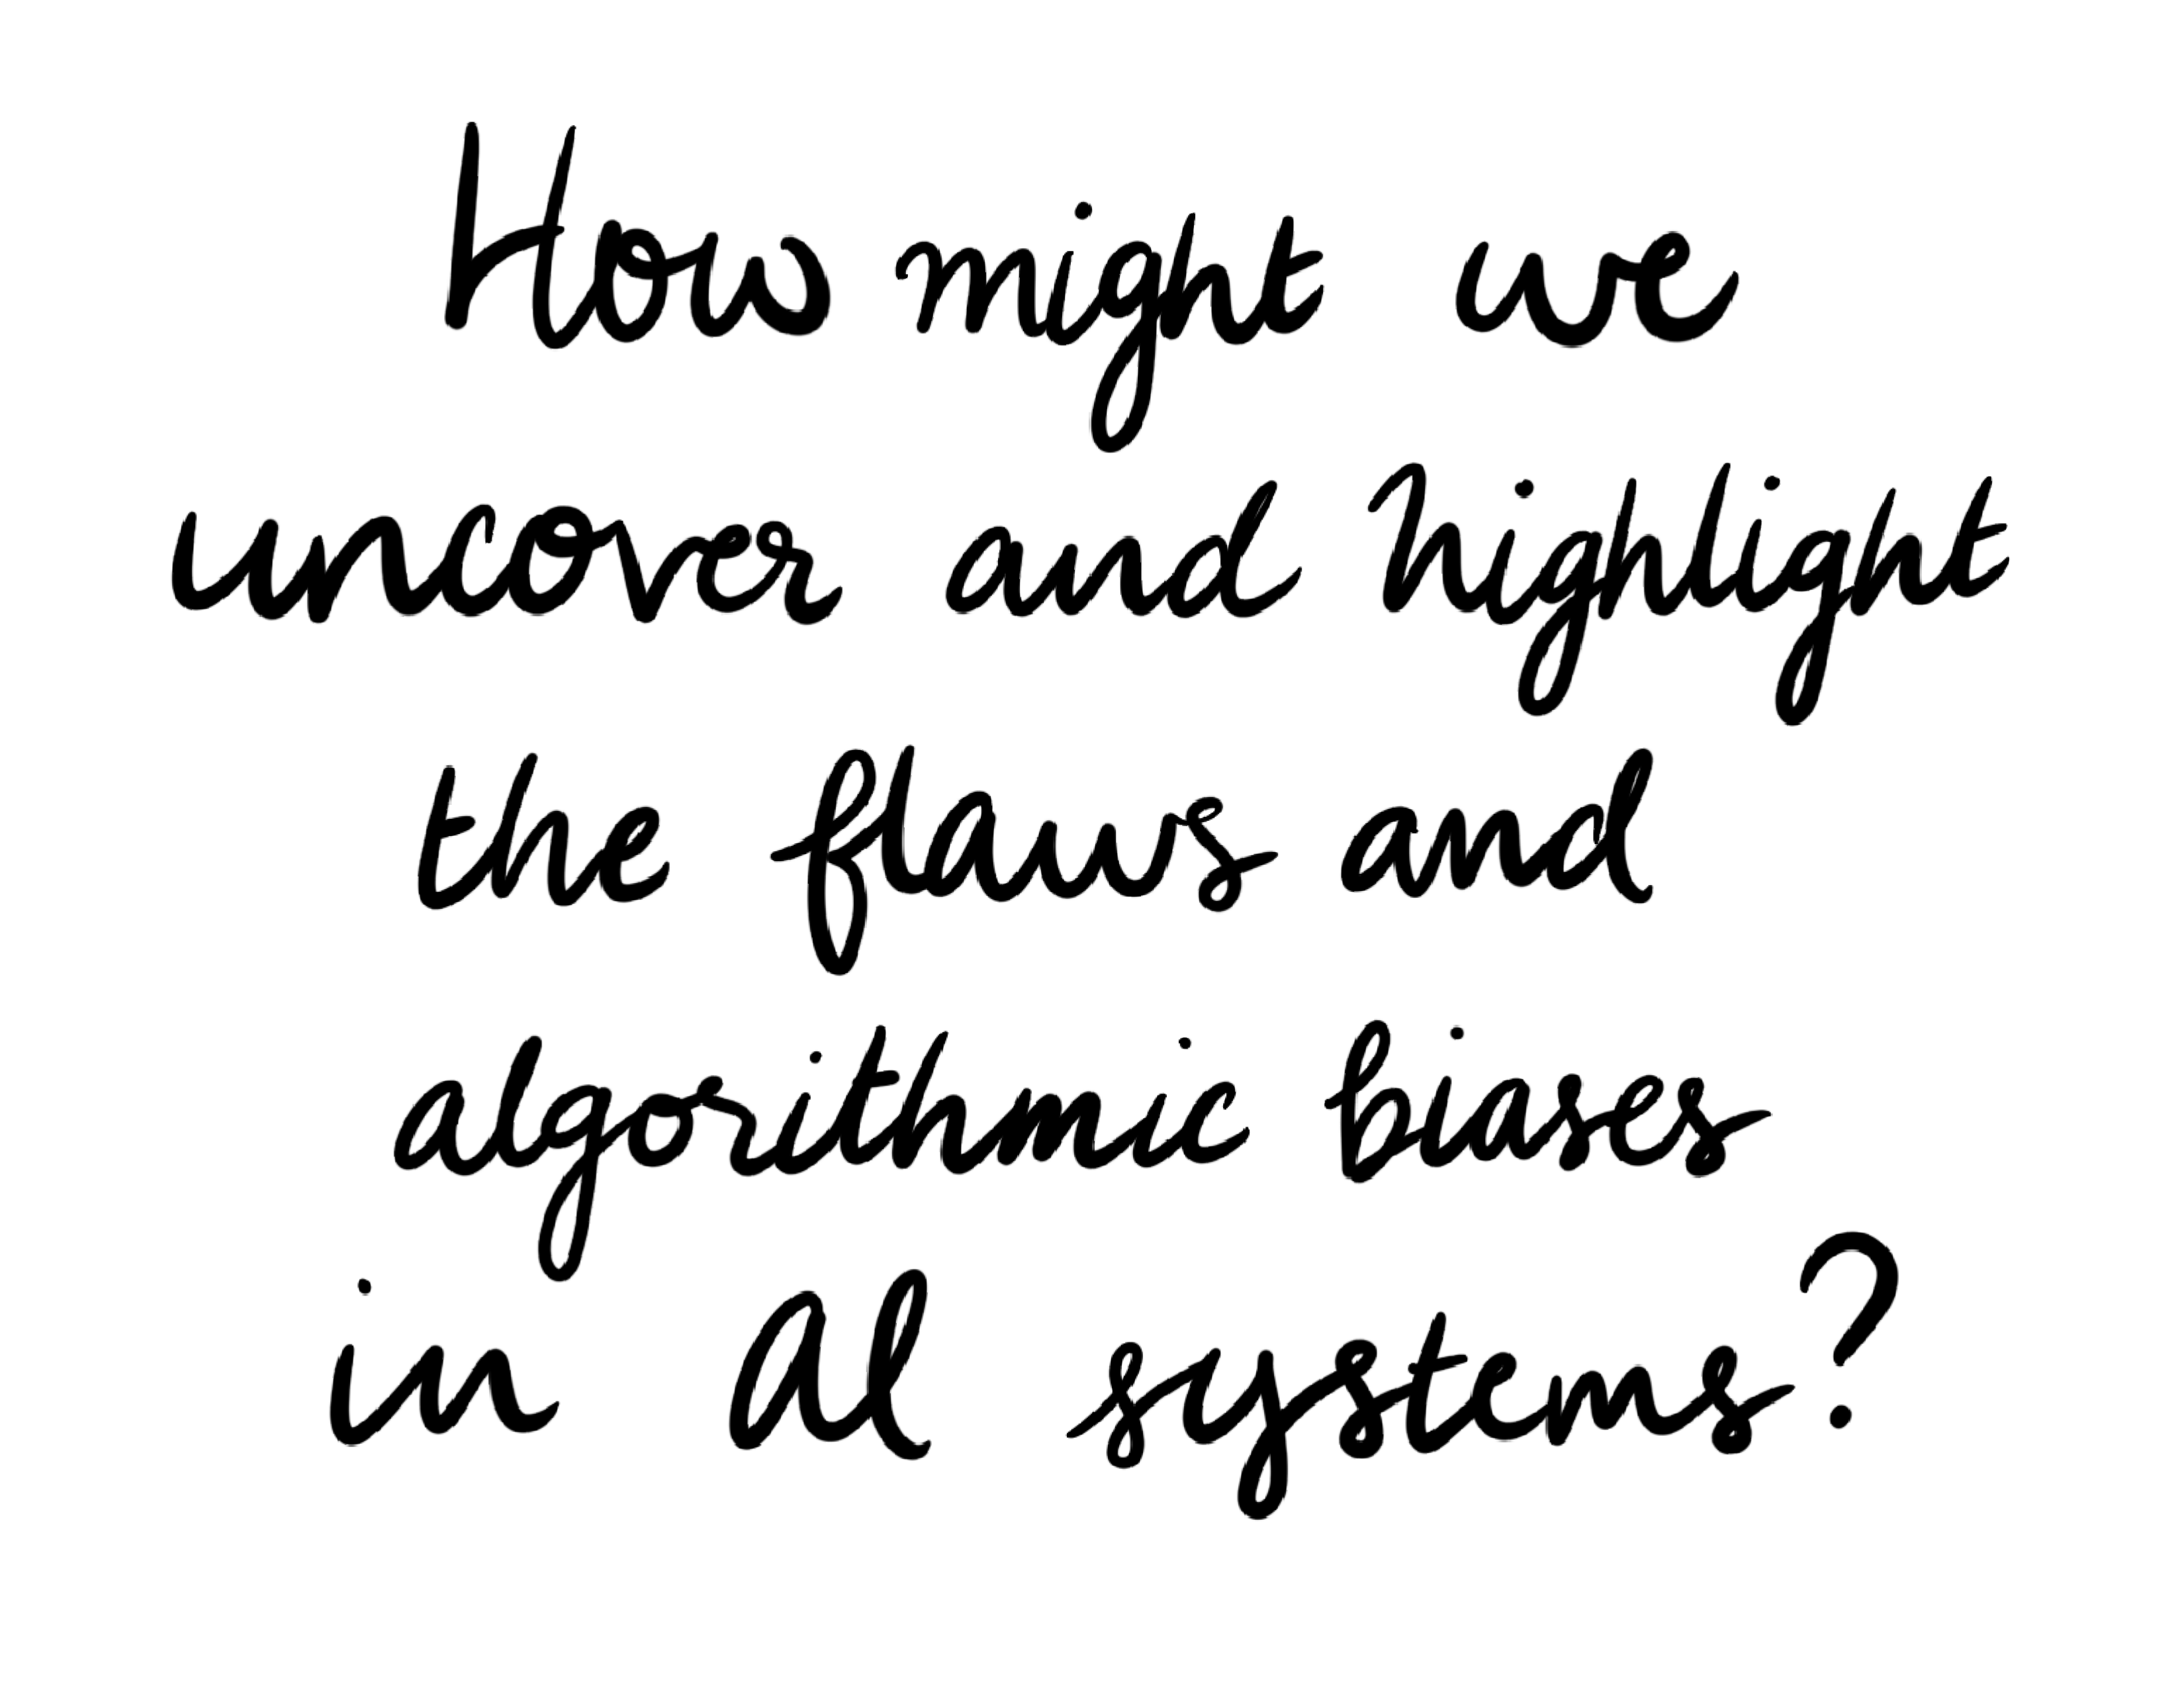 How might we
uncover and highlight
the flaws and
algorithmic biases
in AI systems?